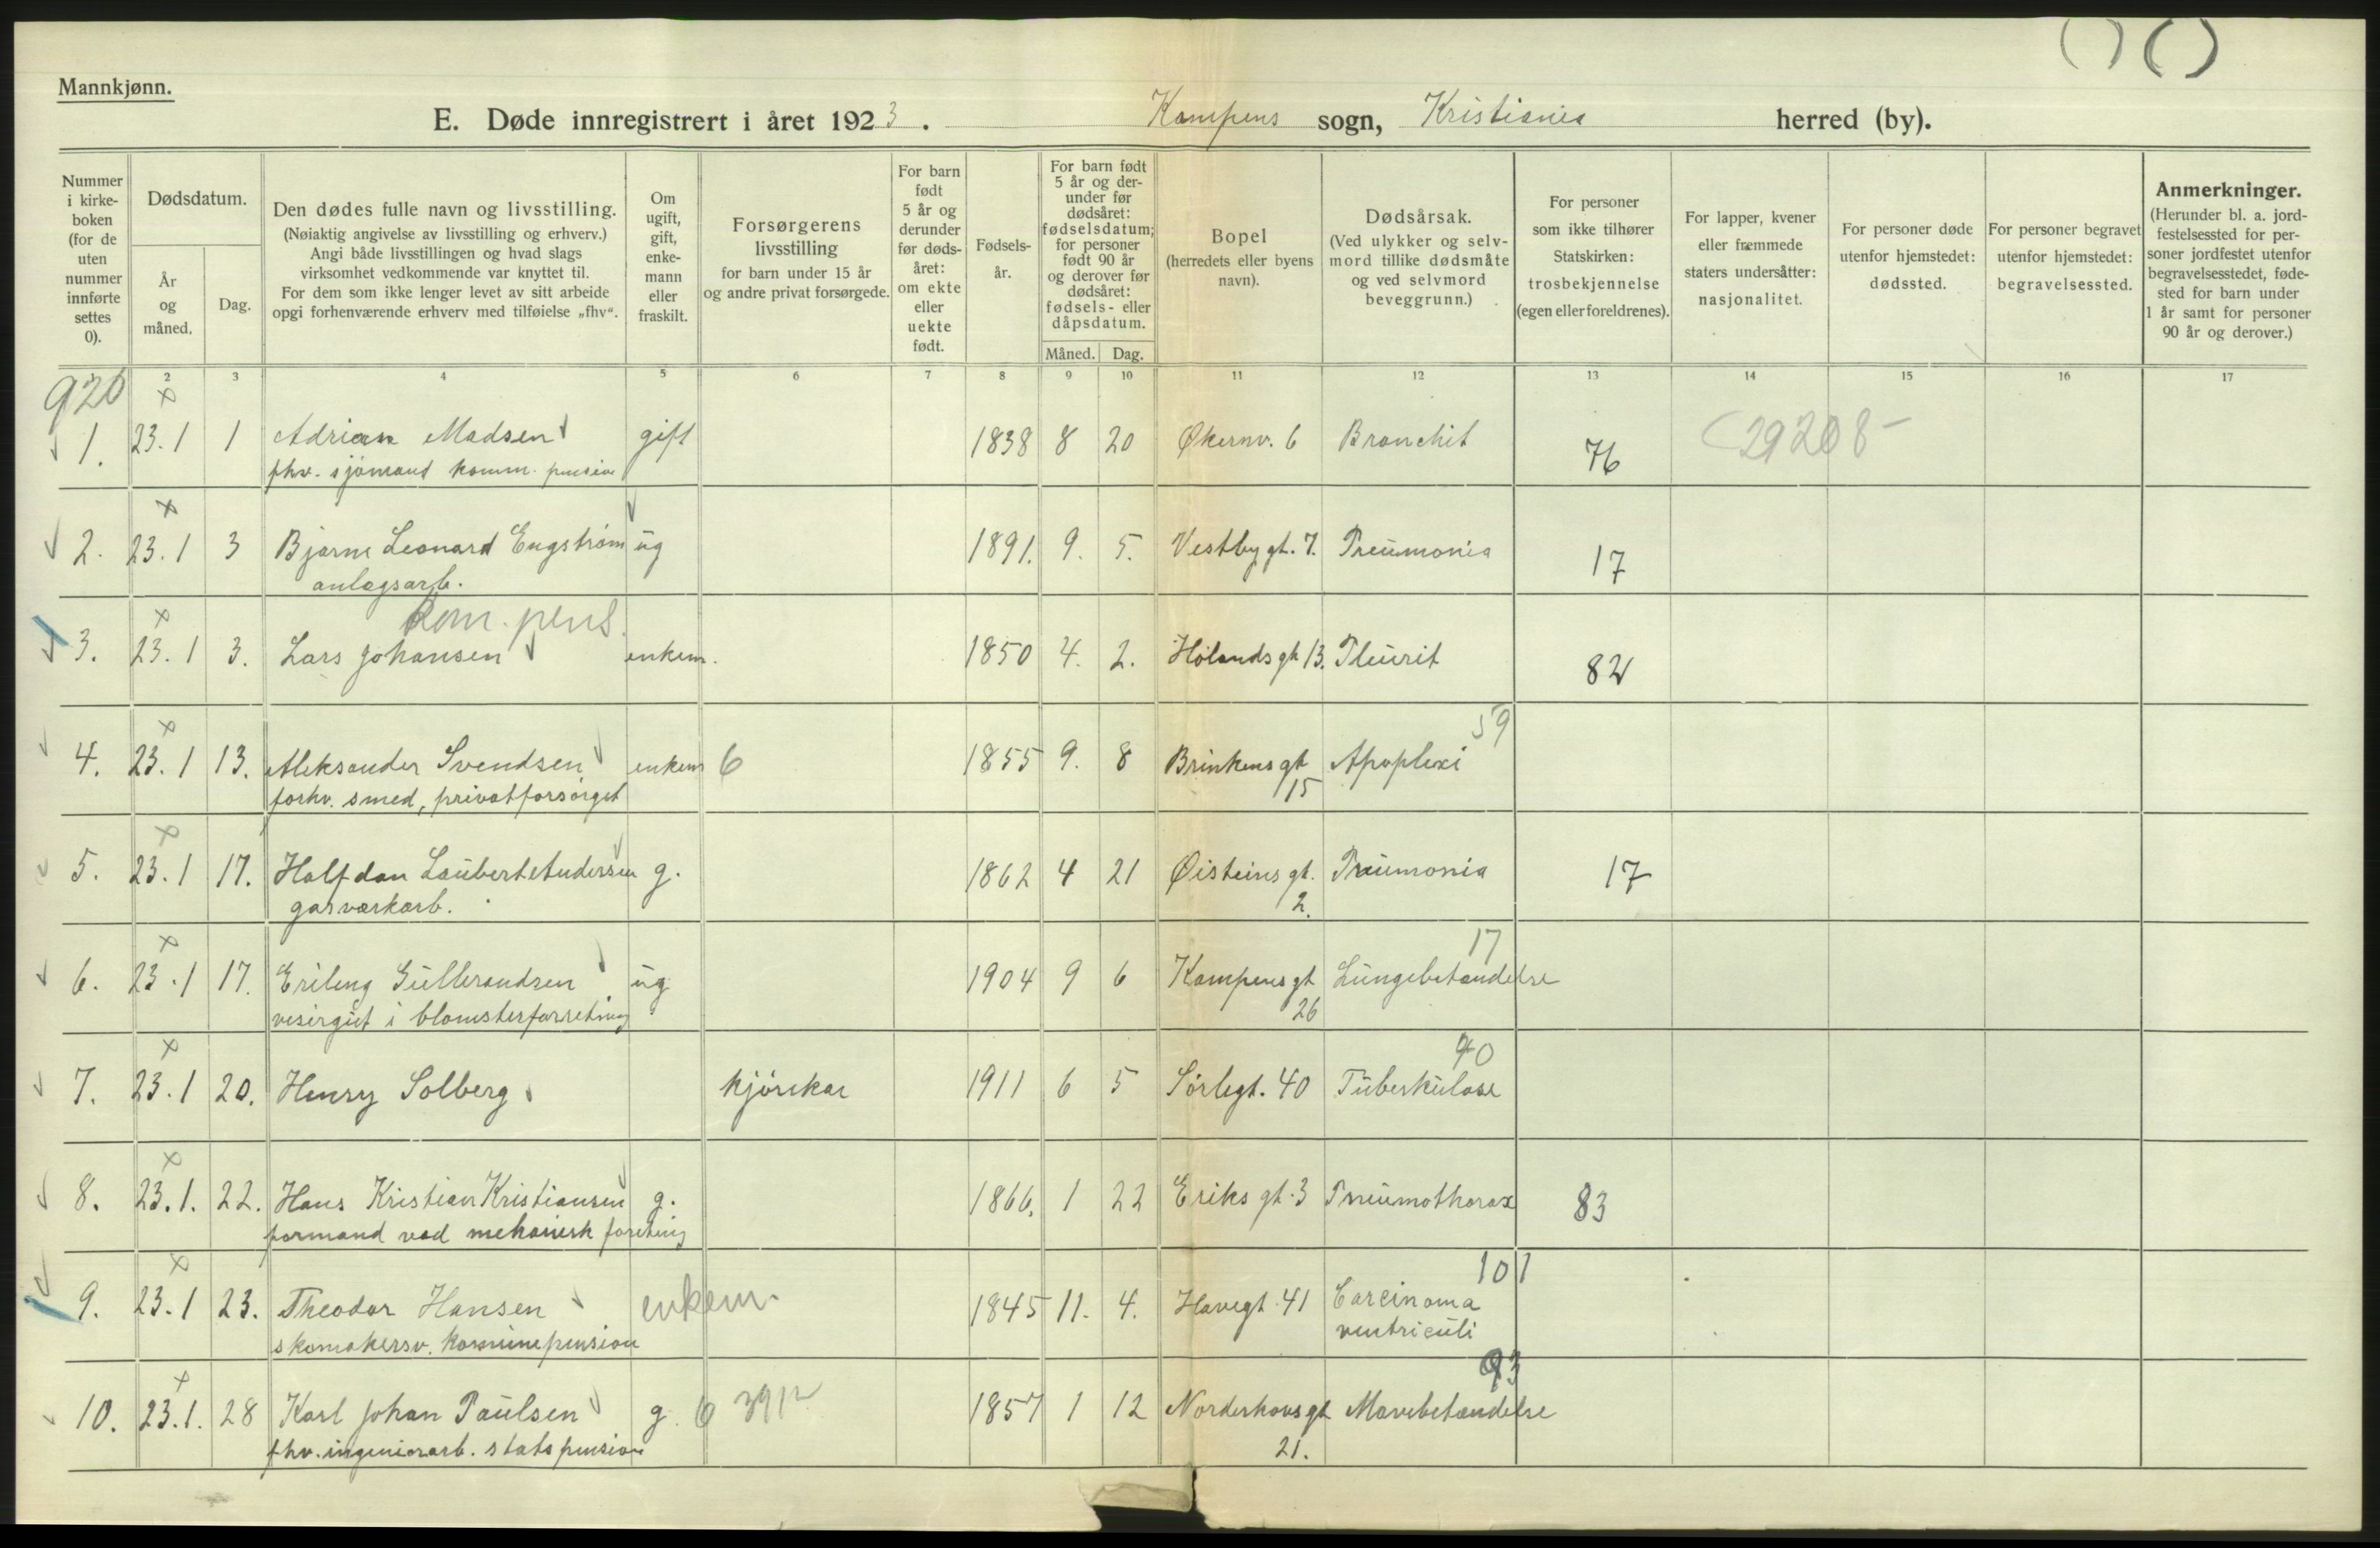 Mannkjønn.
E. Døde innregistrert i året 1923. Kampens sogn, Kristiania herred (by).
Nummer i kirkeboken (for de uten nummer innførte settes 0).
Dødsdatum.
År og måned.
Dag.
Den dødes fulle navn og livsstilling.
(Nøiaktig angivelse av livsstilling og erhverv.)
Angi både livsstillingen og hvad slags
virksomhet vedkommende var knyttet til.
For dem som ikke lenger levet av sitt arbeide
opgi forhenværende erhverv med tilføielse „fhv“.
Om ugift, gift, enkemann eller fraskilt.
Forsørgerens livsstilling
for barn under 15 år
og andre privat forsørgede.
For barn født 5 år og derunder før dødsåret: om ekte eller uekte født.
Fødselsår.
For barn født 5 år og derunder før dødsåret: fødselsdatum; for personer født 90 år og derover før dødsåret: fødsels- eller dåpsdatum.
Måned. Dag.
Bopel
(herredets eller byens navn).
Dødsårsak.
(Ved ulykker og selvmord tillike dødsmåte og ved selvmord beveggrunn.)
For personer som ikke tilhører Statskirken: trosbekjennelse (egen eller foreldrenes).
For lapper, kvener eller fremmede staters undersåtter: nasjonalitet.
For personer døde utenfor hjemstedet: dødssted.
For personer begravet utenfor hjemstedet: begravelsessted.
Anmerkninger.
(Herunder bl. a. jordfestelsessted for personer jordfestet utenfor begravelsesstedet, fødested for barn under 1 år samt for personer 90 år og derover.)
2 3 4 5 6 7 8 9 10 11 12 13 14 15 16 17
920
1. 23.1 1 Adrian Madsen gift 1838 8 20 Økernv. 6 Bronchit 76 29208
fhv. sjømand komm. pension
2. 23.1 3 Bjarne Leonard Engstrøm ug 1891. 9. 5. Vestbygt. 7. Pneumonia 17
anlegsarb.
kom. pens.
3. 23.1 3. Lars Johansen enkem. 1850 4. 2. Hølandsgt 13. Pleurit 82
59
4. 23.1 13. Aleksander Svendsen enkem 6 1855 9. 8 Brinkensgt Apoplexi
forhv. smed, privatforsørget 15
5. 23.1 17. Halfdan Laubert Andersen g. 1862 4 21 Øisteinsgt. Pneumonia 17
gasverkarb. 2.
17
6. 23.1 17. Erling Gullerandsen ug 1904 9 6 Kampensgt Lungebetændelse
visergut i blomsterforretning 26
40
7. 23.1 20. Henry Solberg kjørekar 1911 6 5 Sørligt. 40 Tuberkulose
8. 23.1. 22. Hans Kristian Kristiansen g. 1866. 1 22 Eriks gt. 3 Pneumothorax 83
formand ved mekanisk foretning
101
9. 23.1 23. Theodor Hansen enkem. 1845 11. 4. Havegt. 41 Carcinoma
skomakersv. kommunepension ventriculi
93
10. 23.1. 28 Karl Johan Paulsen g. 6 1857 1 12 Norderhovsgt Mavebetændelse
fhv. ingeniørarb. statspension 21.